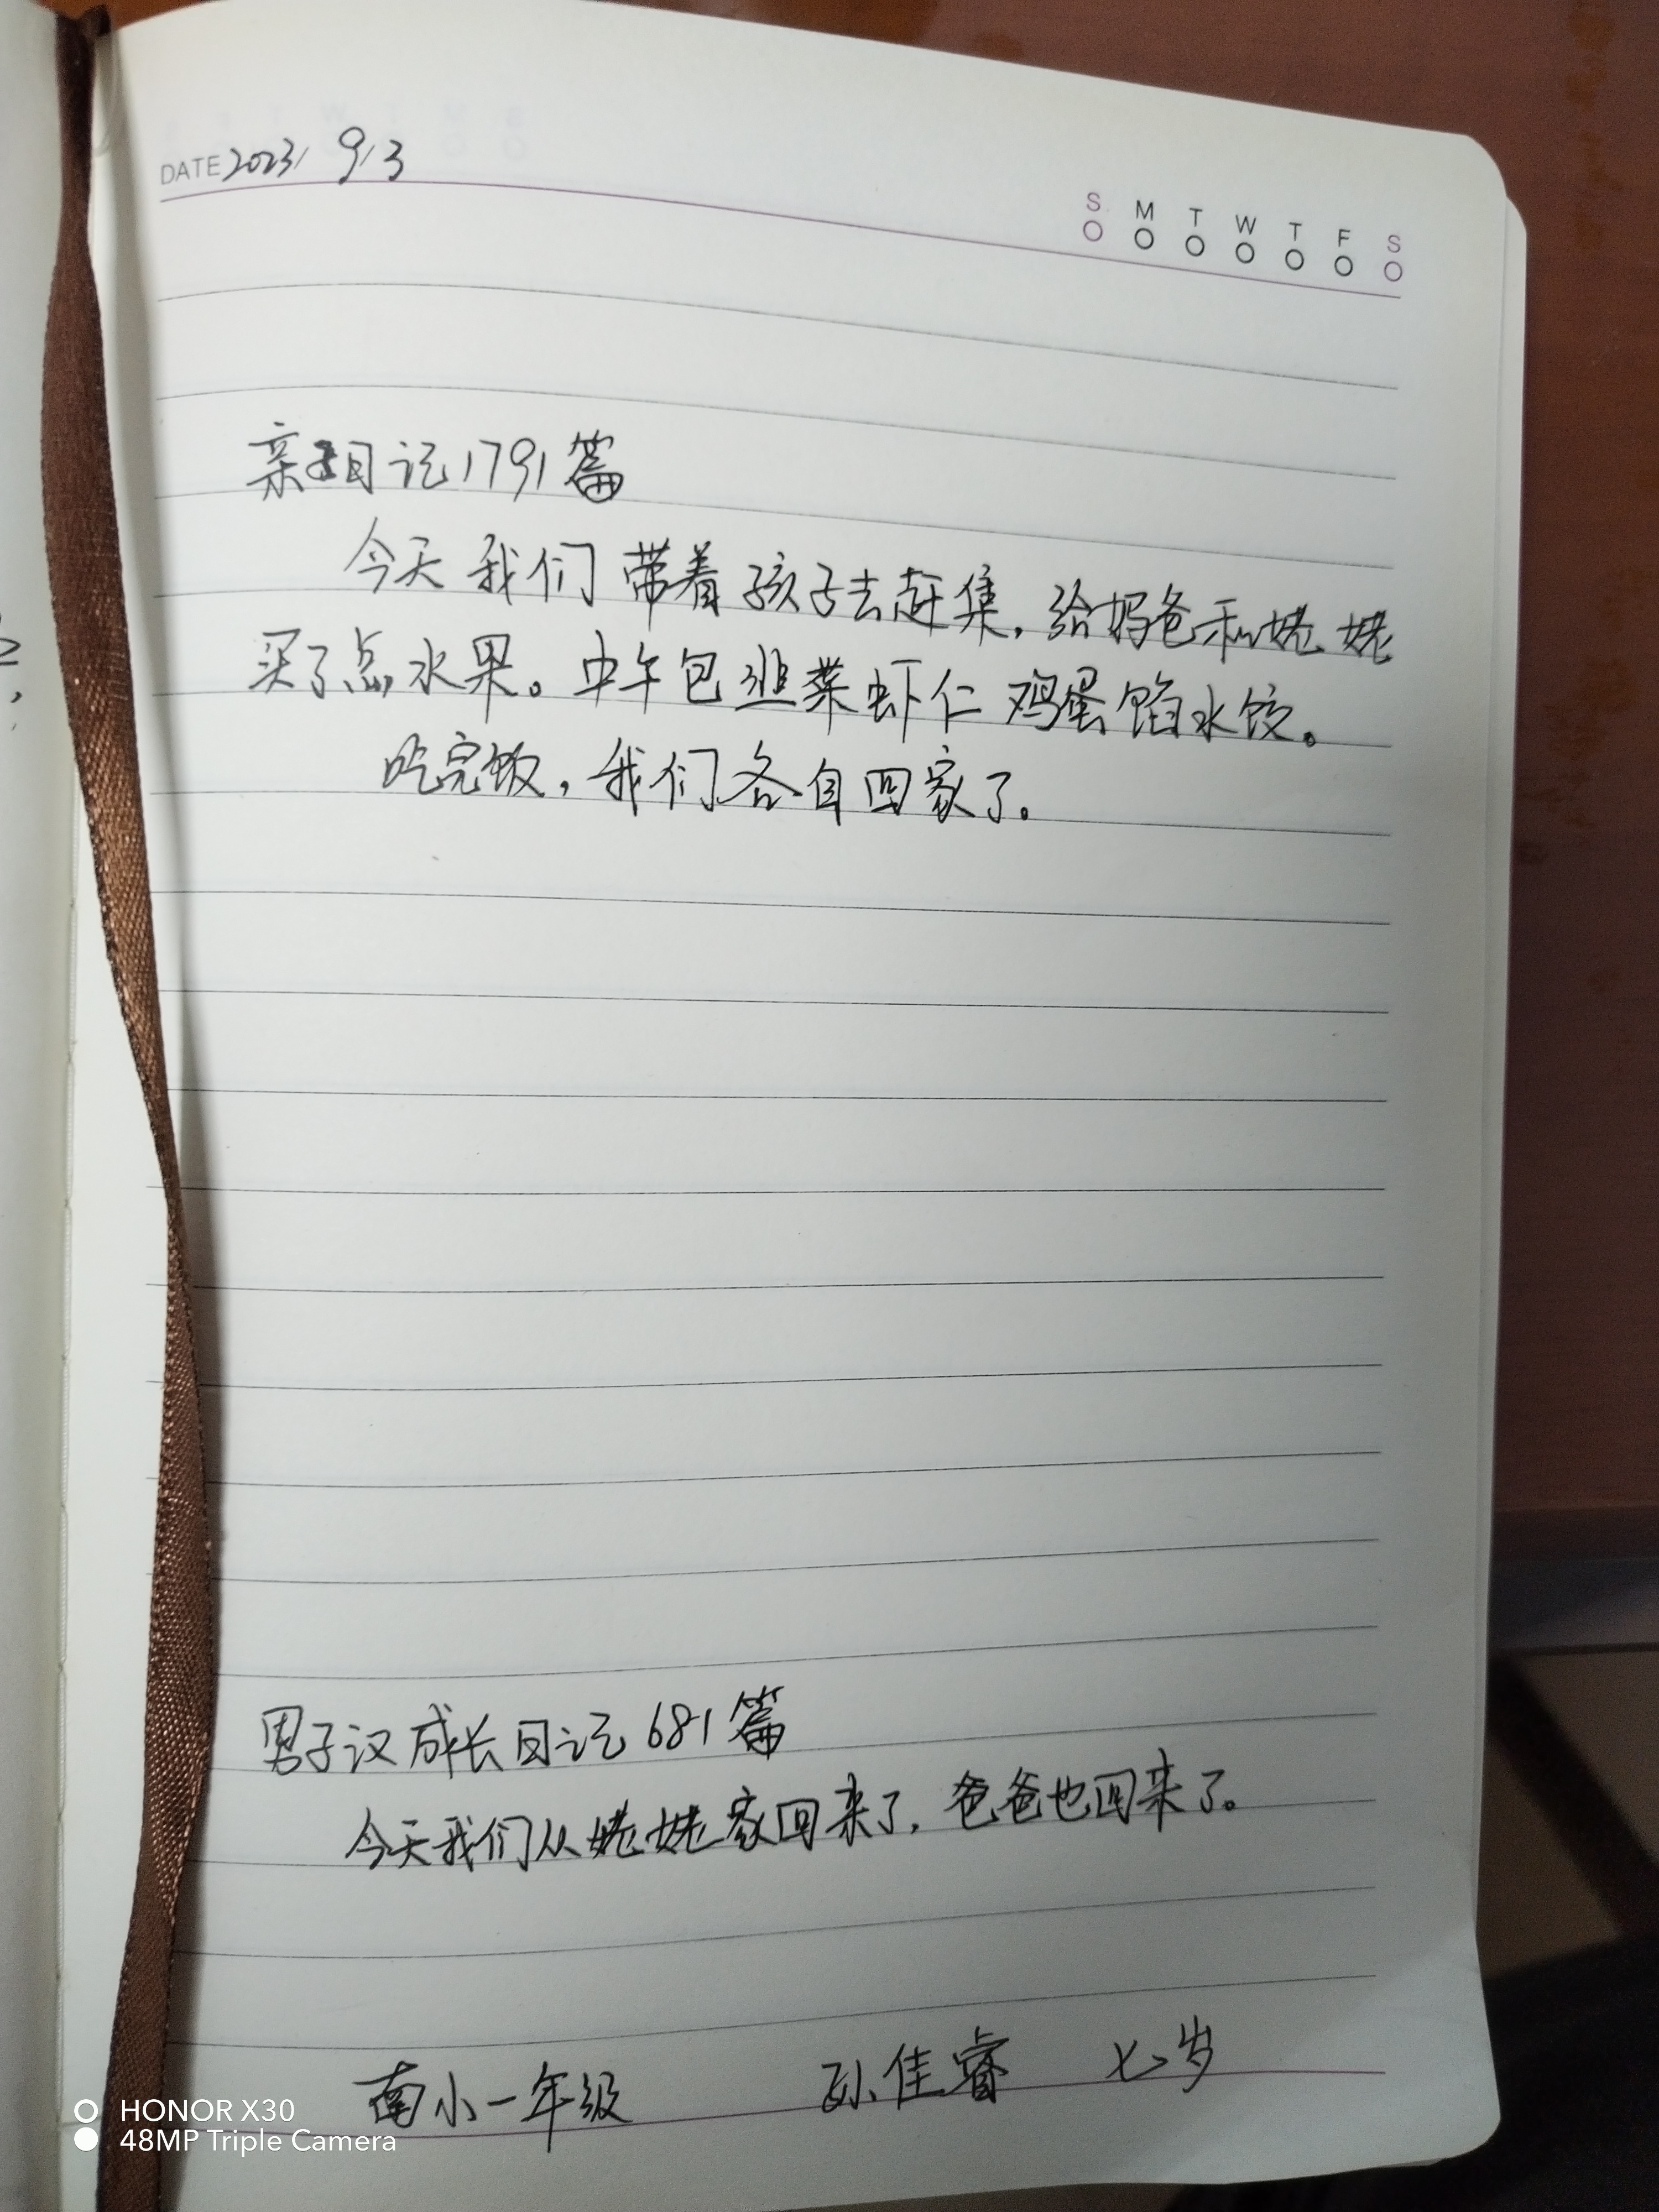 DATE 2023/ 9/3
S M T W T F S
亲子日记1791篇
今天我们带着孩子去赶集,给妈爸和姥姥
买了点水果。中午包韭菜虾仁鸡蛋馅水饺。
吃完饭,我们各自回家了。
男子汉成长日记681篇
今天我们从姥姥家回来了,爸爸也回来了。
南小一年级 孙佳睿 七岁
HONOR X30
48MP Triple Camera